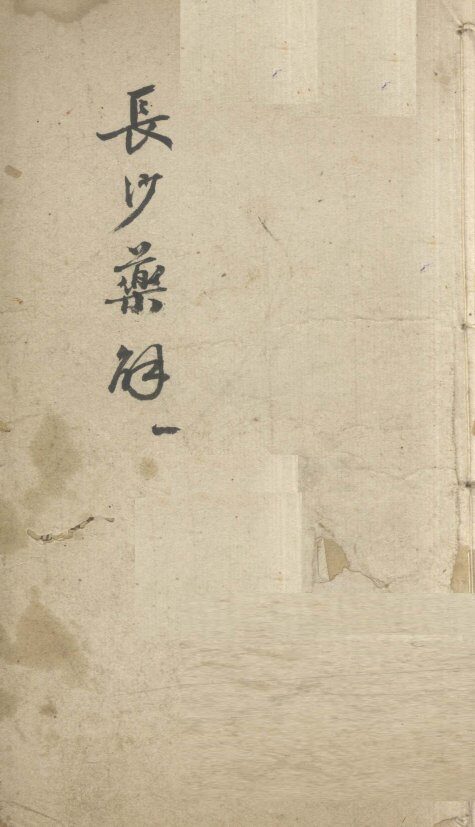 長沙藥解
一